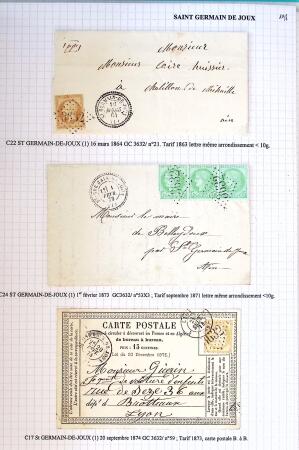 SAINT GERMAIN DE JOUX
Monsieur
Monsieur Caire huissier
à Chatillon de Michaille
ain
C22 ST GERMAIN-DE-JOUX (1) 16 mars 1864 GC 3632/ n°21. Tarif 1863 lettre même arrondissement < 10g.
Monsieur le maire
de Belleydoux
par St Germain de Joux
Ain
C24 ST GERMAIN-DE-JOUX (1) 1er février 1873 GC3632/ n°53X3 ; Tarif septembre 1871 lettre même arrondissement <10g.
CARTE POSTALE
de bureau à bureau.
PRIX : 15 CENTIMES
(Loi du 20 Décembre 1872.)
Monsieur Guérin
rue de Sèze 36
Lyon
C17 St GERMAIN-DE-JOUX (1) 20 septembre 1874 GC 3632/ n°59 ; Tarif 1873, carte postale B. à B.